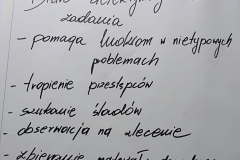 Biuro detektywistyczne
zadania
- pomaga ludziom w nietypowych
problemach
- tropienie przestępców
- szukanie śladów
- obserwacja na zlecenie
- zbieranie